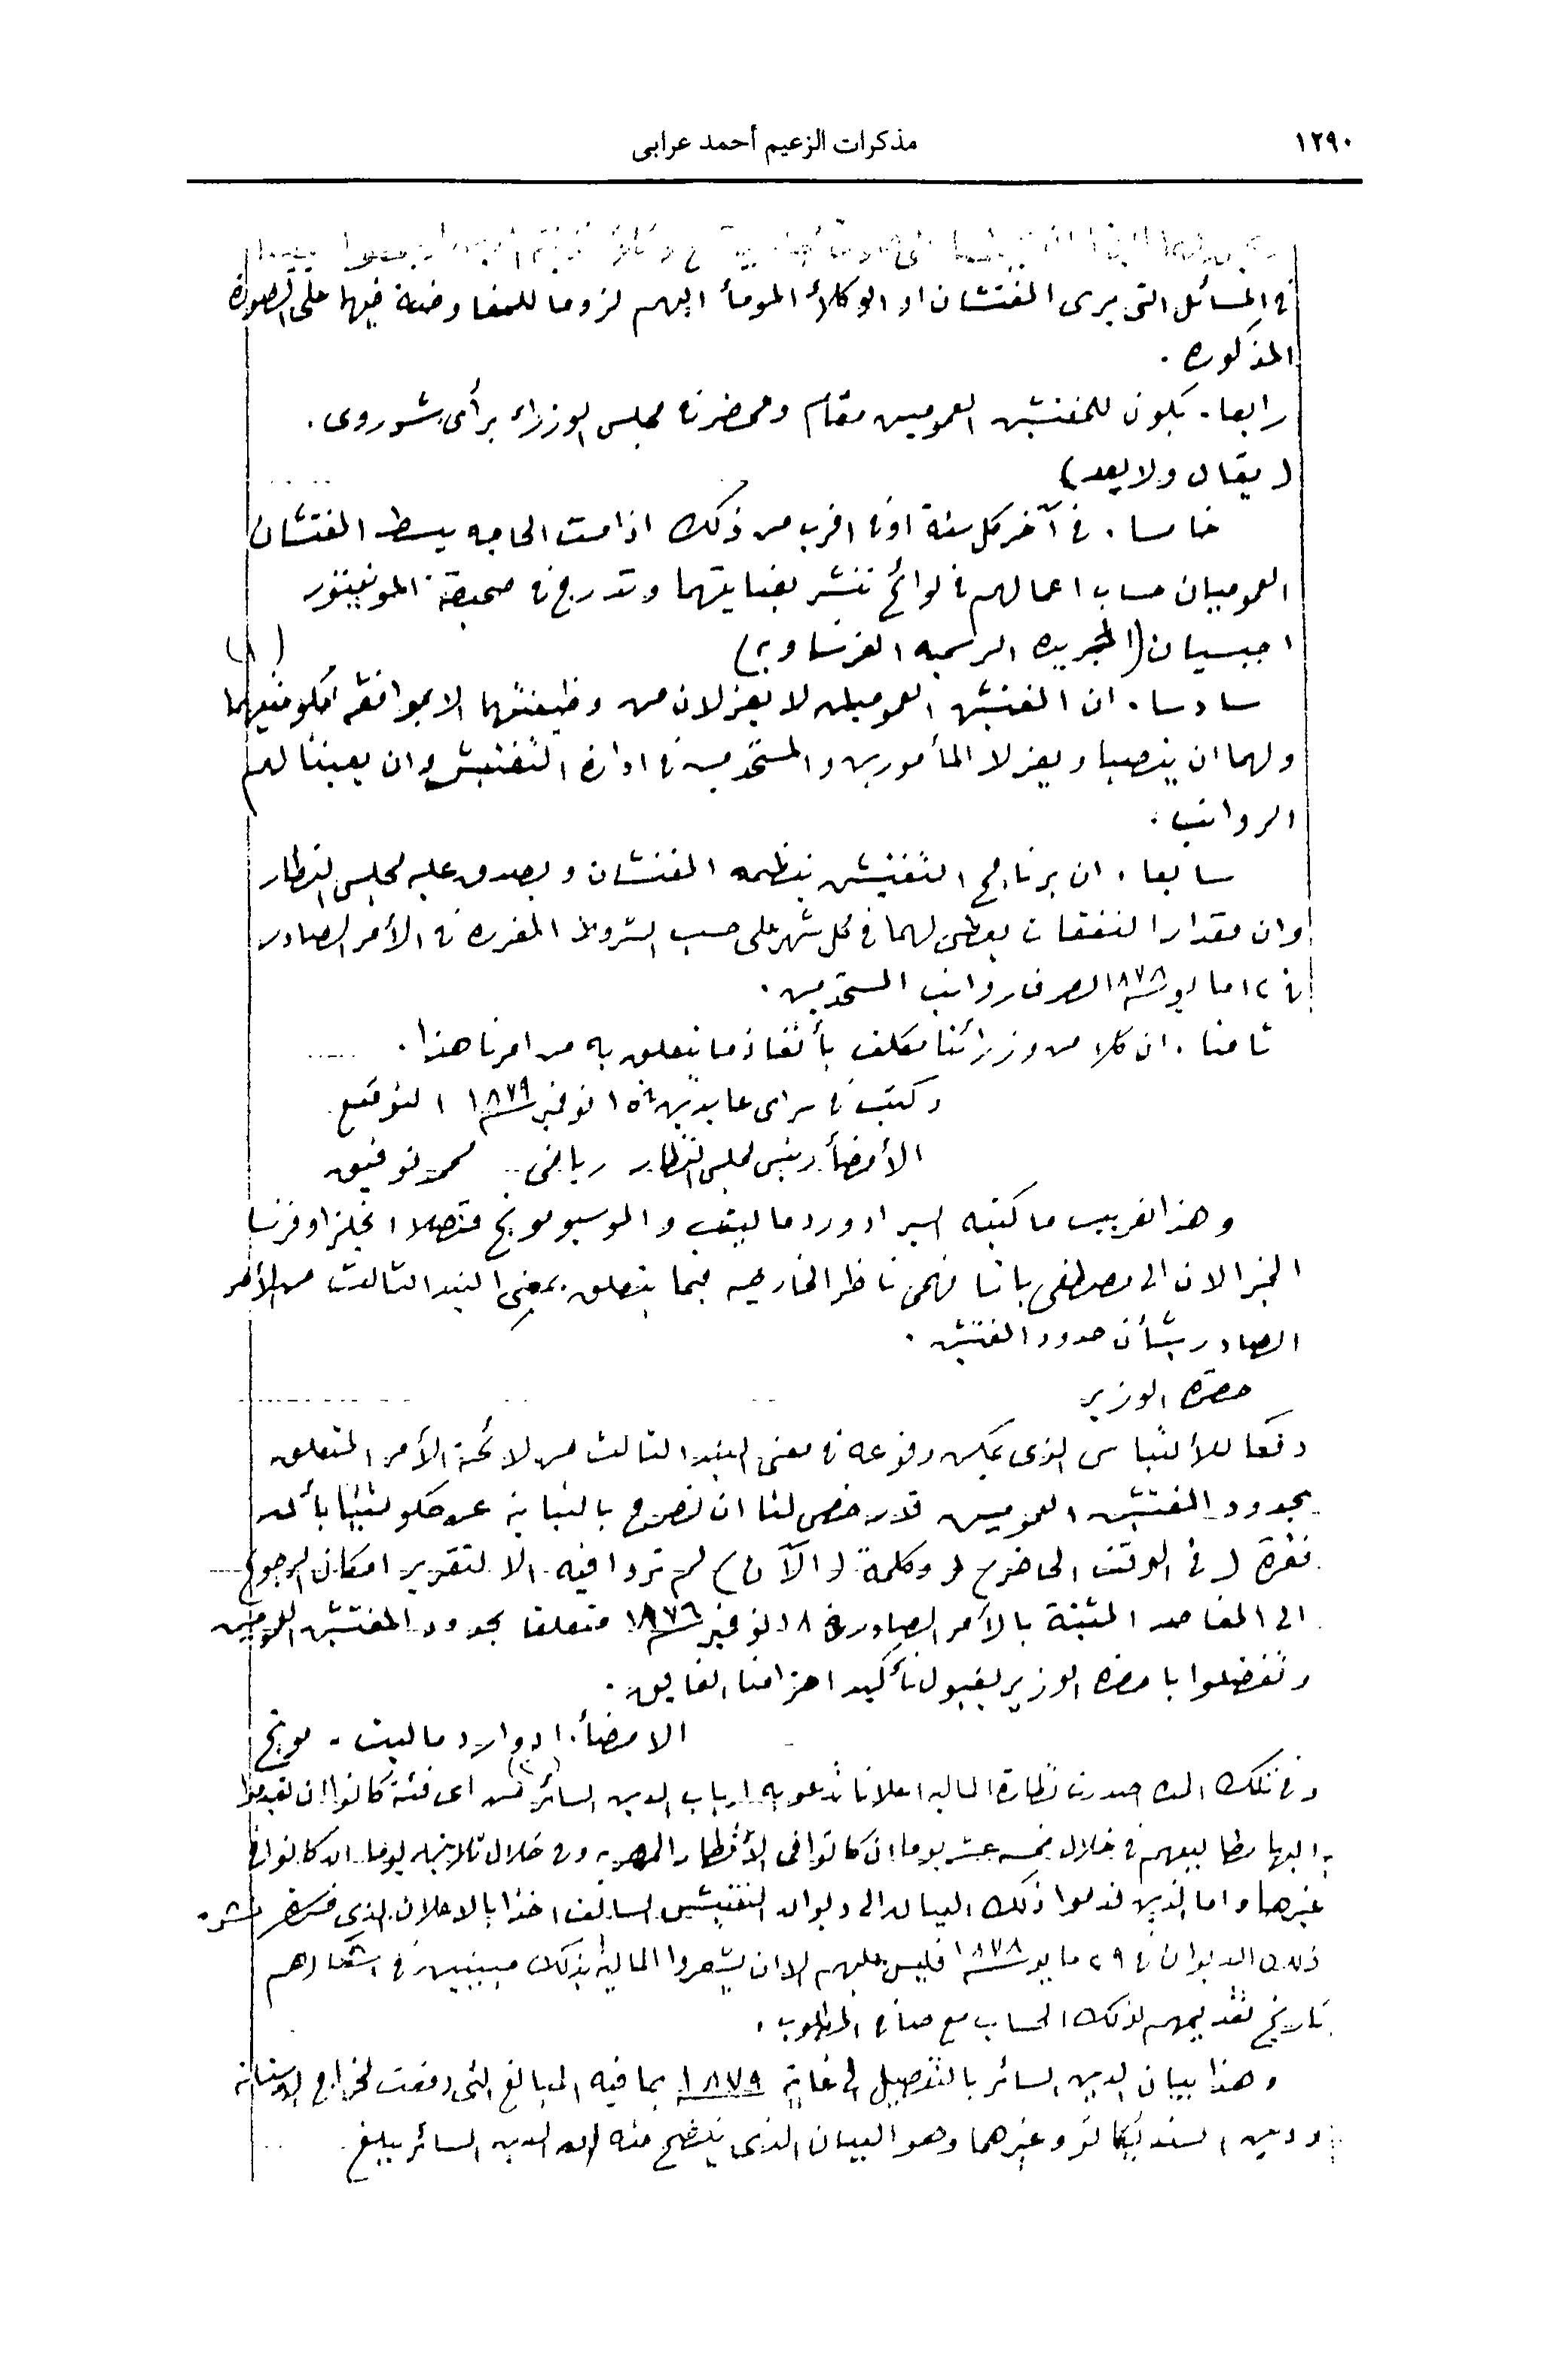 ١٢٩٠
مذكرات الزعيم أحمد عرابى
فى المسائل التى يرى المفتشان او الوكلاء المومأ اليهم لزوما للمفاوضة فيها على الصورة
المذكوره .
رابعا . يكون للمفتشين العموميين مقام ومحضر فى مجلس الوزراء برأى شوروى .
( يقال ولا يعد )
خامسا . فى آخر كل سنة او فى اقرب من ذلك اذا مست الحاجه يبسط المفتشان
العموميان حساب اعمالهم فى لوائح تنشر بعنايتهما وتدرج فى صحيفة المونيتور
اجبسيان ( الجريده الرسميه الفرنساويه )
(١)
سادسا . ان المفتشين العموميين لا يعزلان من وظيفتهما الا بموافقة حكومتيهما
ولهما ان ينصبا ويعزلا المأمورين والمستخدمين فى ادارة التفتيش وان يعينا لهم
الرواتب .
سابعا . ان برنامج التفتيش ينظمه المفتشان ويصدق عليه مجلس النظار
وان مقدار النفقات يعطى لهما فى كل شهر على حسب الشروط المقرره فى الأمر الصادر
فى ١٢ مايو سنة ١٨٧٨ لصرف رواتب المستخدمين .
ثامنا . ان كلا من وزرائنا مكلف بأنفاذ ما يتعلق به من امرنا هذا .
وكتب فى سراى عابدين فى ١٥ نوفمبر سنة ١٨٧٩ التوقيع
الأمضأ رئيس مجلس النظار رياض . محمد توفيق
وهذا تعريب ما كتبه السير ادورد ماليت والموسيو مونج قنصلا انجلترا وفرنسا
الجنرالان الى مصطفى باشا فهمى ناظر الخارجيه فيما يتعلق بمعنى البند الثالث من الأمر
الصادر بشأن حدود المفتشين .
حضرة الوزير
دفعا للألتباس الذى يمكن وقوعه فى معنى البند الثالث من لائحة الأمر المتعلق
بحدود المفتشين العموميين قد رخص لنا ان نصرح بالنيابة عن حكومتينا بأن
فقرة ( فى الوقت الحاضر ) وكلمة ( الآن ) لم تردا فيه الا لتقرير امكان الرجوع
الى المقاصد المثبتة بالأمر الصادر فى ١٨ نوفمبر سنة ١٨٧٦ متعلقا بحدود المفتشين العموميين
وتفضلوا يا حضرة الوزير بقبول تأكيد احترامنا الفايق .
الامضأ . ادوارد ماليت - مونج
وفى تلك المدة اصدرت نظارة المالية اعلانا تدعو به ارباب الدين السائر من اى فئة كانوا ان يقدموا
(٢)
اليها مطاليبهم فى خلال خمسة عشر يوما ان كانوا فى الأقطار المصريه وفى خلال ثلاثين يوما ان كانوا فى
غيرها واما الذين قدموا ذلك البيان الى ديوان التفتيش السالف اخذا بالاعلان الذى نشره
ذلك الديوان فى ٢٩ مايو سنة ١٨٧٨ فليس عليهم الا ان يشعروا المالية بذلك مبينين فى اشعارهم
تاريخ تقديمهم لذلك الحساب مع صافى المطلوب .
وهذا بيان الدين السائر بالتفصيل الى غاية سنة ١٨٧٩ بما فيه المبالغ التى دفعت لخراج الاستانة
ودين السنديكاتو وغيرهما وهو البيان الذى يتضح منه ان الدين السائر يبلغ